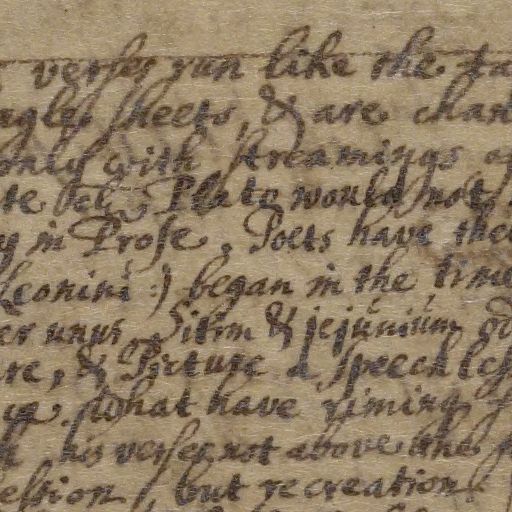 verses run like the ta
ngles sheets, & are chan
only with streamings of
te &c. Plato would not
y in Prose, Poets have the
Leonini) began in the time
er unus. Sitim & jejunium
re, & Picture a speechless
What have riming
his verses not above the
ession, but recreation